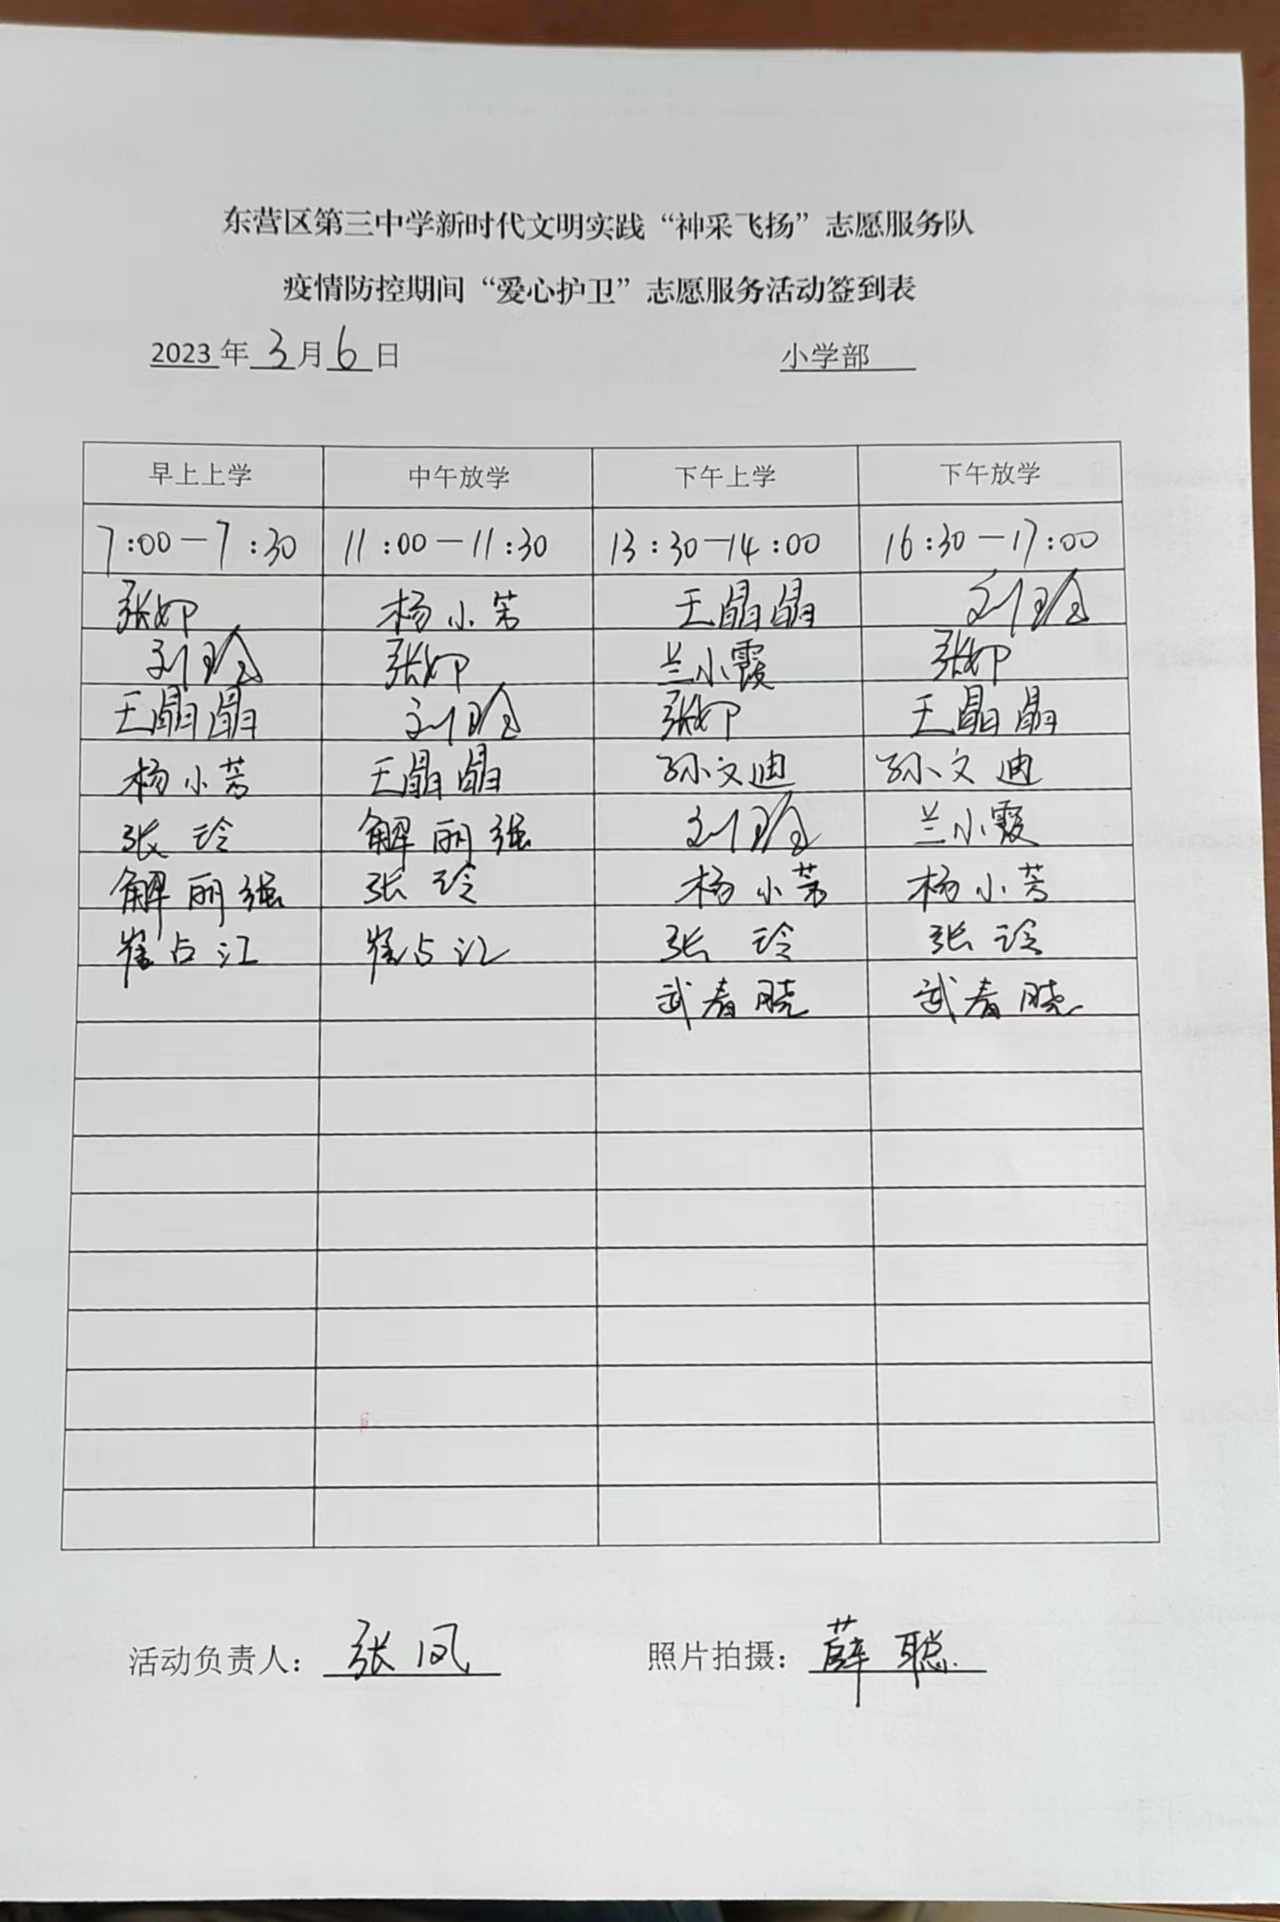 东营区第三中学新时代文明实践“神采飞扬”志愿服务队
疫情防控期间“爱心护卫”志愿服务活动签到表
2023年3月6日 小学部
早上上学 中午放学 下午上学 下午放学
7:00-7:30 11:00-11:30 13:30-14:00 16:30-17:00
张 杨小芳 王晶晶 刘
刘 张 兰小霞 张
王晶晶 刘 张 王晶晶
杨小芳 王晶晶 孙文迪 孙文迪
张玲 解丽强 刘 兰小霞
解丽强 张玲 杨小芳 杨小芳
崔占江 崔占江 张玲 张玲
武春晓 武春晓
活动负责人：张凤 照片拍摄：薛聪